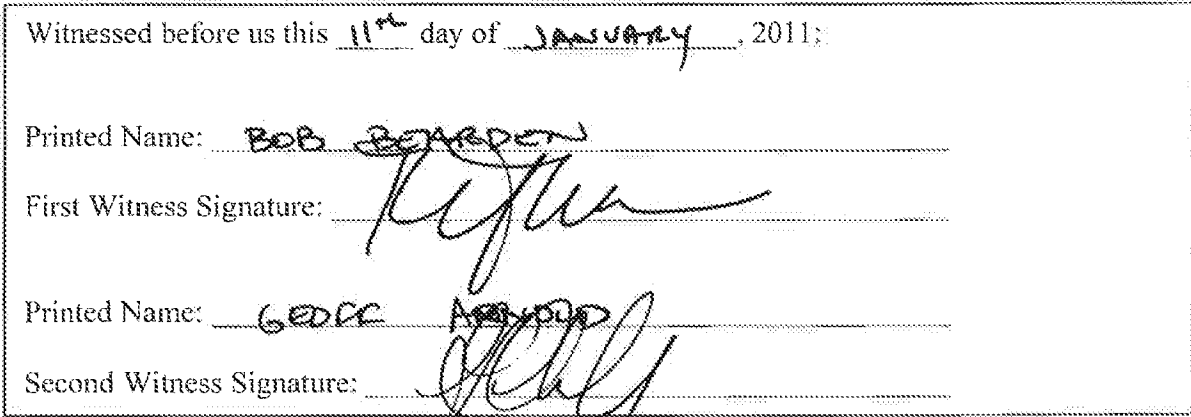 Witnessed before us this 11th day of JANUARY, 2011;
Printed Name: BOB BEARDEN
First Witness Signature:
Printed Name: GEOFF
Second Witness Signature: